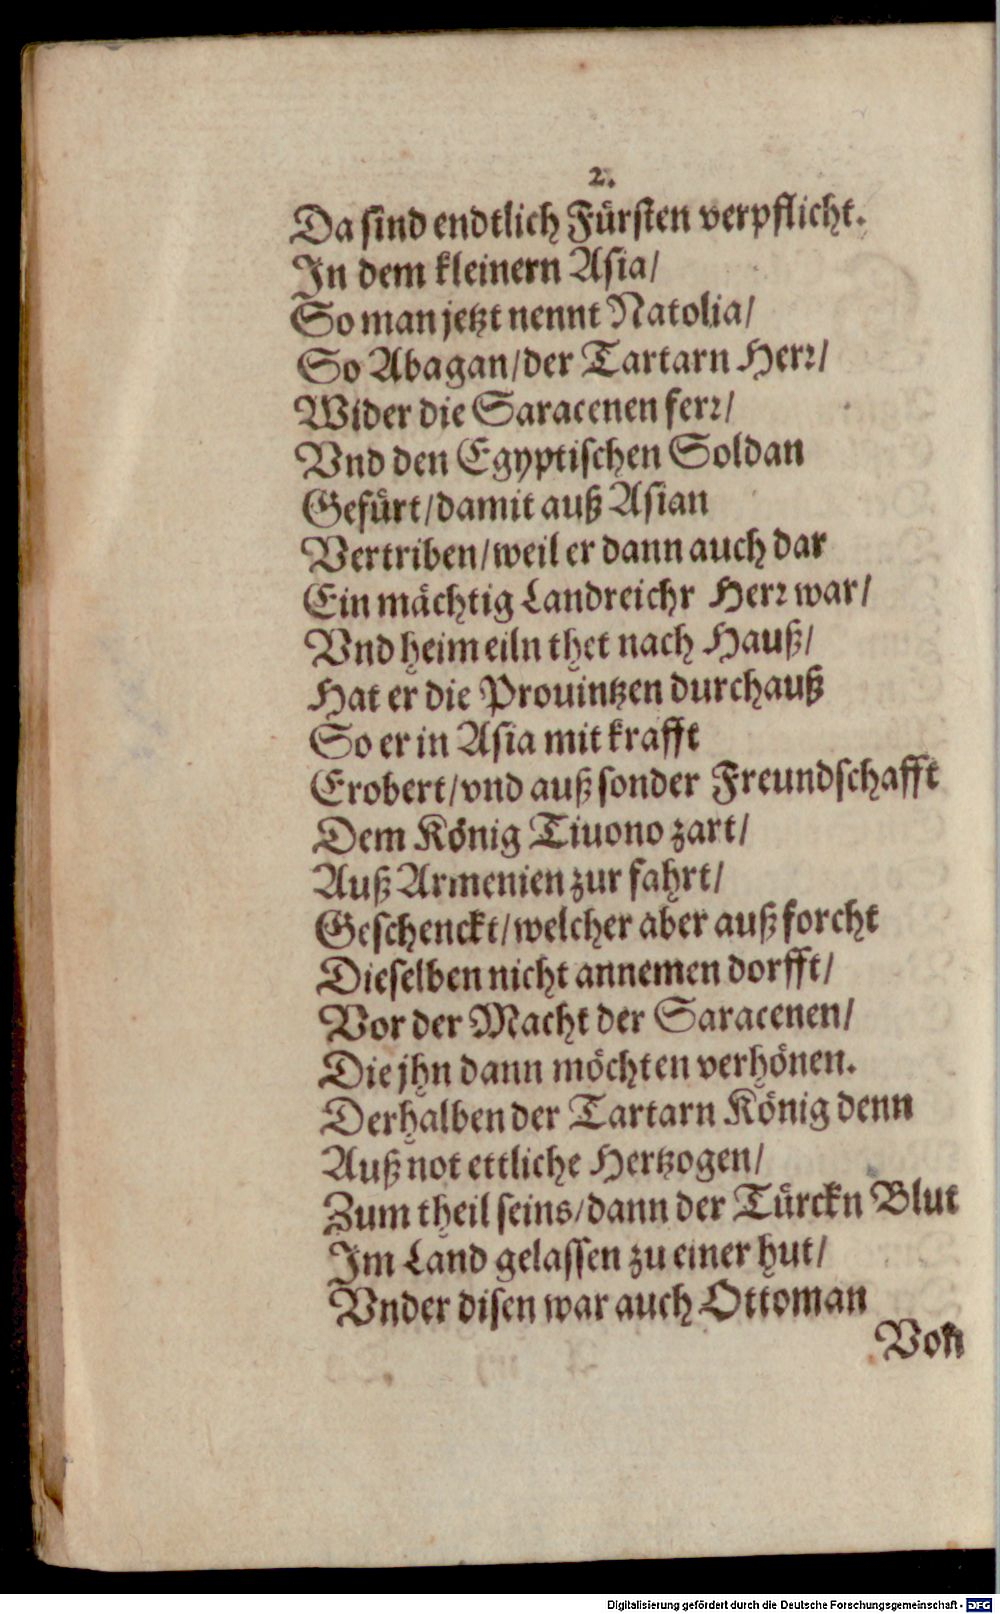 2.
Da sind endtlich Fürsten verpflicht.
In dem kleinern Asia/
So man jetzt nennt Natolia/
So Abagan/der Tartarn Herꝛ/
Wider die Saracenen ferꝛ/
Vnd den Egyptischen Soldan
Gefürt/damit auß Asian
Vertriben/weil er dann auch dar
Ein mächtig Landreichr Herꝛ war/
Vnd heim eiln thet nach Hauß/
Hat er die Prouintzen durchauß
So er in Asia mit krafft
Erobert/vnd auß sonder Freundschafft
Dem König Tiuono zart/
Auß Armenien zur fahrt/
Geschenckt/welcher aber auß forcht
Dieselben nicht annemen dorfft/
Vor der Macht der Saracenen/
Die jhn dann möchten verhönen.
Derhalben der Tartarn König denn
Auß not ettliche Hertzogen/
Zum theil seins/dann der Türckn Blut
Im Land gelassen zu einer hut/
Vnder disen war auch Ottoman
Von
Digitalisierung gefördert durch die Deutsche Forschungsgemeinschaft - DFG